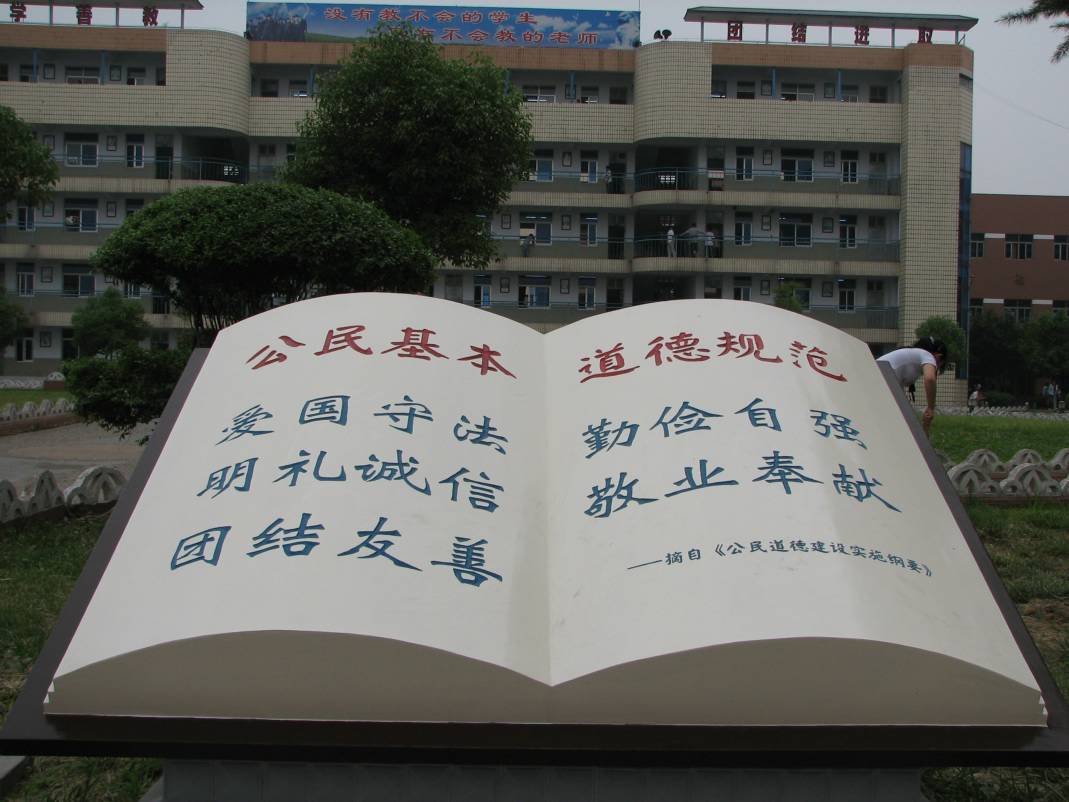 学善教
没有教不会的学生
有不会教的老师
团结进取
公民基本道德规范
爱国守法
明礼诚信
团结友善
勤俭自强
敬业奉献
——摘自《公民道德建设实施纲要》